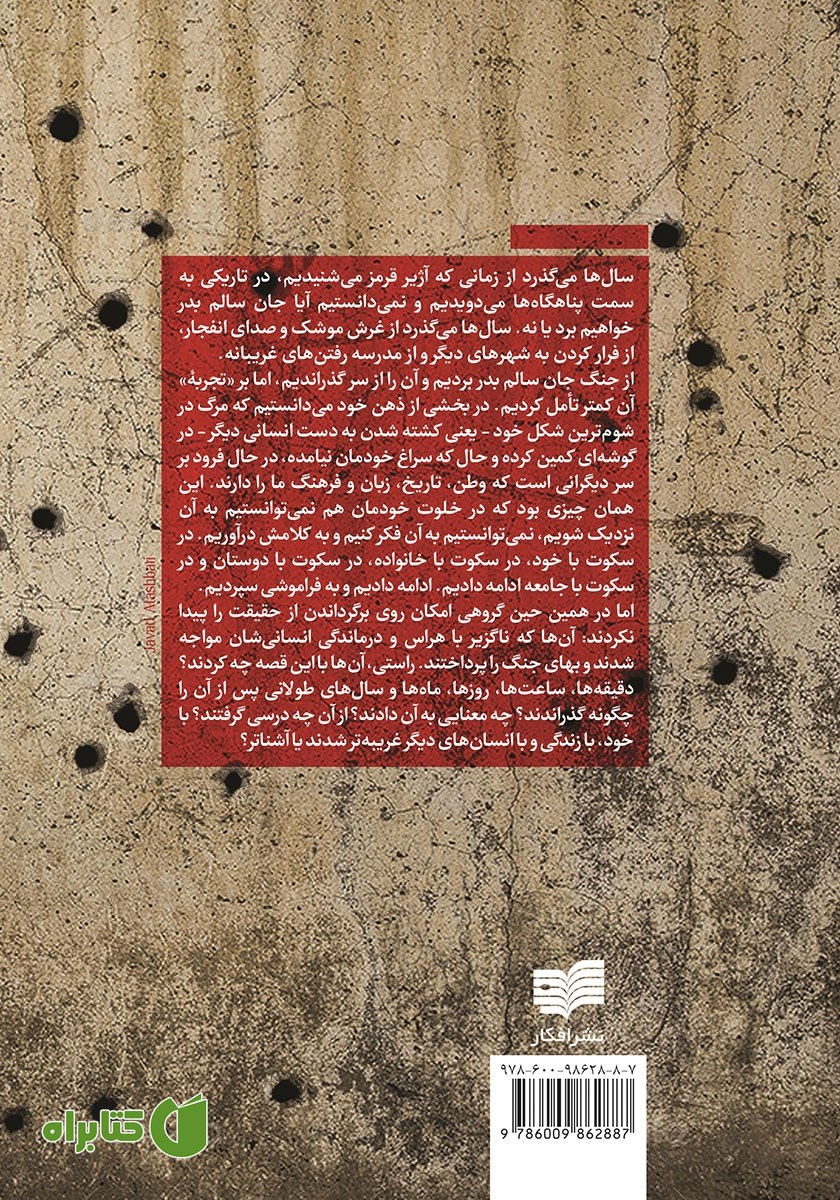 سال‌ها می‌گذرد از زمانی که آژیر قرمز می‌شنیدیم، در تاریکی به
سمت پناهگاه‌ها می‌دویدیم و نمی‌دانستیم آیا جان سالم بدر
خواهیم برد یا نه. سال‌ها می‌گذرد از غرش موشک و صدای انفجار،
از فرار کردن به شهرهای دیگر و از مدرسه رفتن‌های غریبانه.
از جنگ جان سالم بدر بردیم و آن را از سر گذراندیم، اما بر «تجربهٔ»
آن کمتر تأمل کردیم. در بخشی از ذهن خود می‌دانستیم که مرگ در
شوم‌ترین شکل خود - یعنی کشته شدن به دست انسانی دیگر - در
گوشه‌ای کمین کرده و حال که سراغ خودمان نیامده، در حال فرود بر
سر دیگرانی است که وطن، تاریخ، زبان و فرهنگ ما را دارند. این
همان چیزی بود که در خلوت خودمان هم نمی‌توانستیم به آن
نزدیک شویم، نمی‌توانستیم به آن فکر کنیم و به کلامش درآوریم. در
سکوت با خود، در سکوت با خانواده، در سکوت با دوستان و در
سکوت با جامعه ادامه دادیم. ادامه دادیم و به فراموشی سپردیم.
اما در همین حین گروهی امکان روی برگرداندن از حقیقت را پیدا
نکردند: آن‌ها که ناگزیر با هراس و درماندگی انسانی‌شان مواجه
شدند و بهای جنگ را پرداختند. راستی، آن‌ها با این قصه چه کردند؟
دقیقه‌ها، ساعت‌ها، روزها، ماه‌ها و سال‌های طولانی پس از آن را
چگونه گذراندند؟ چه معنایی به آن دادند؟ از آن چه درسی گرفتند؟ با
خود، با زندگی و با انسان‌های دیگر غریبه‌تر شدند یا آشناتر؟
Javad Atashbari
نشر افکار
۹۷۸-۶۰۰-۹۸۶۲۸-۸-۷
9 786009 862887
کتابراه